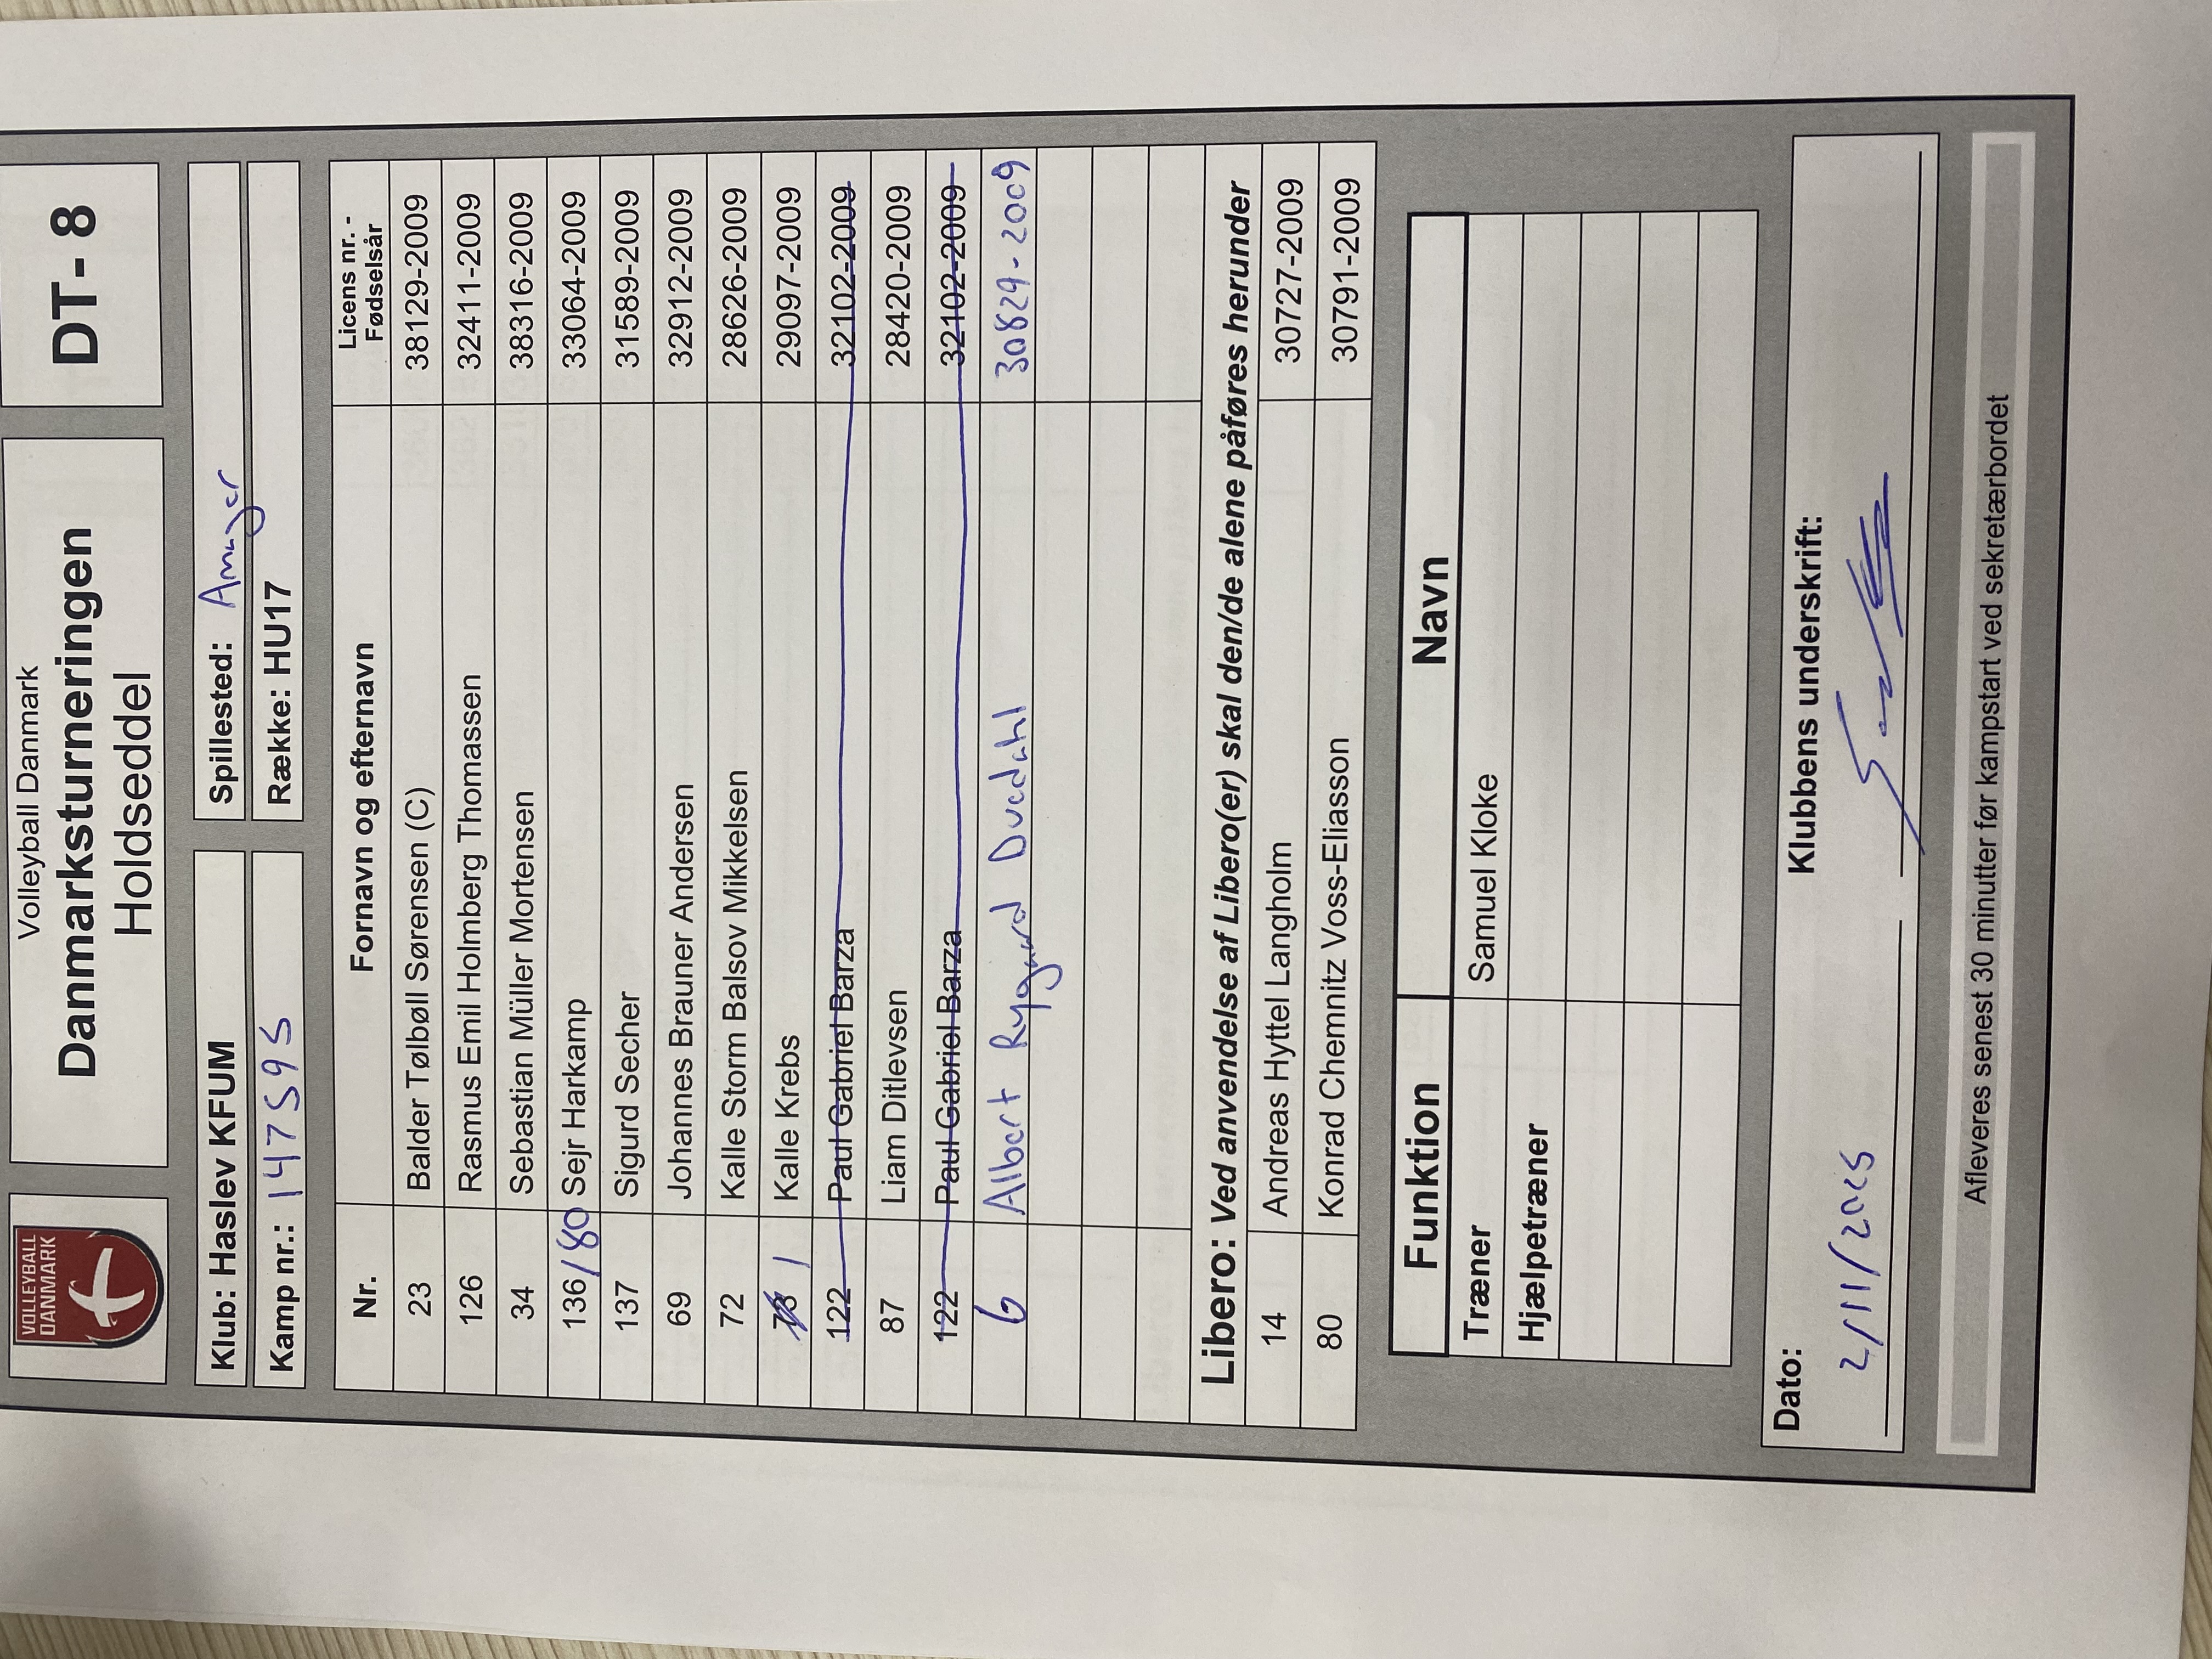 VOLLEYBALL
DANMARK
Volleyball Danmark
Danmarksturneringen
Holdseddel
DT- 8
Klub: Haslev KFUM
Spillested: Amager
Kamp nr.: 147595
Række: HU17
Nr. Fornavn og efternavn Licens nr. - Fødselsår
23 Balder Tølbøll Sørensen (C) 38129-2009
126 Rasmus Emil Holmberg Thomassen 32411-2009
34 Sebastian Müller Mortensen 38316-2009
136/80 Sejr Harkamp 33064-2009
137 Sigurd Secher 31589-2009
69 Johannes Brauner Andersen 32912-2009
72 Kalle Storm Balsov Mikkelsen 28626-2009
1 Kalle Krebs 29097-2009
122 Paul Gabriel Barza 32102-2009
87 Liam Ditlevsen 28420-2009
122 Paul Gabriel Barza 32102-2009
6 Albert Rygaard Duedahl 30829-2009
Libero: Ved anvendelse af Libero(er) skal den/de alene påføres herunder
14 Andreas Hyttel Langholm 30727-2009
80 Konrad Chemnitz Voss-Eliasson 30791-2009
Funktion Navn
Træner Samuel Kloke
Hjælpetræner
Dato: Klubbens underskrift:
2/11/2025
Afleveres senest 30 minutter før kampstart ved sekretærbordet